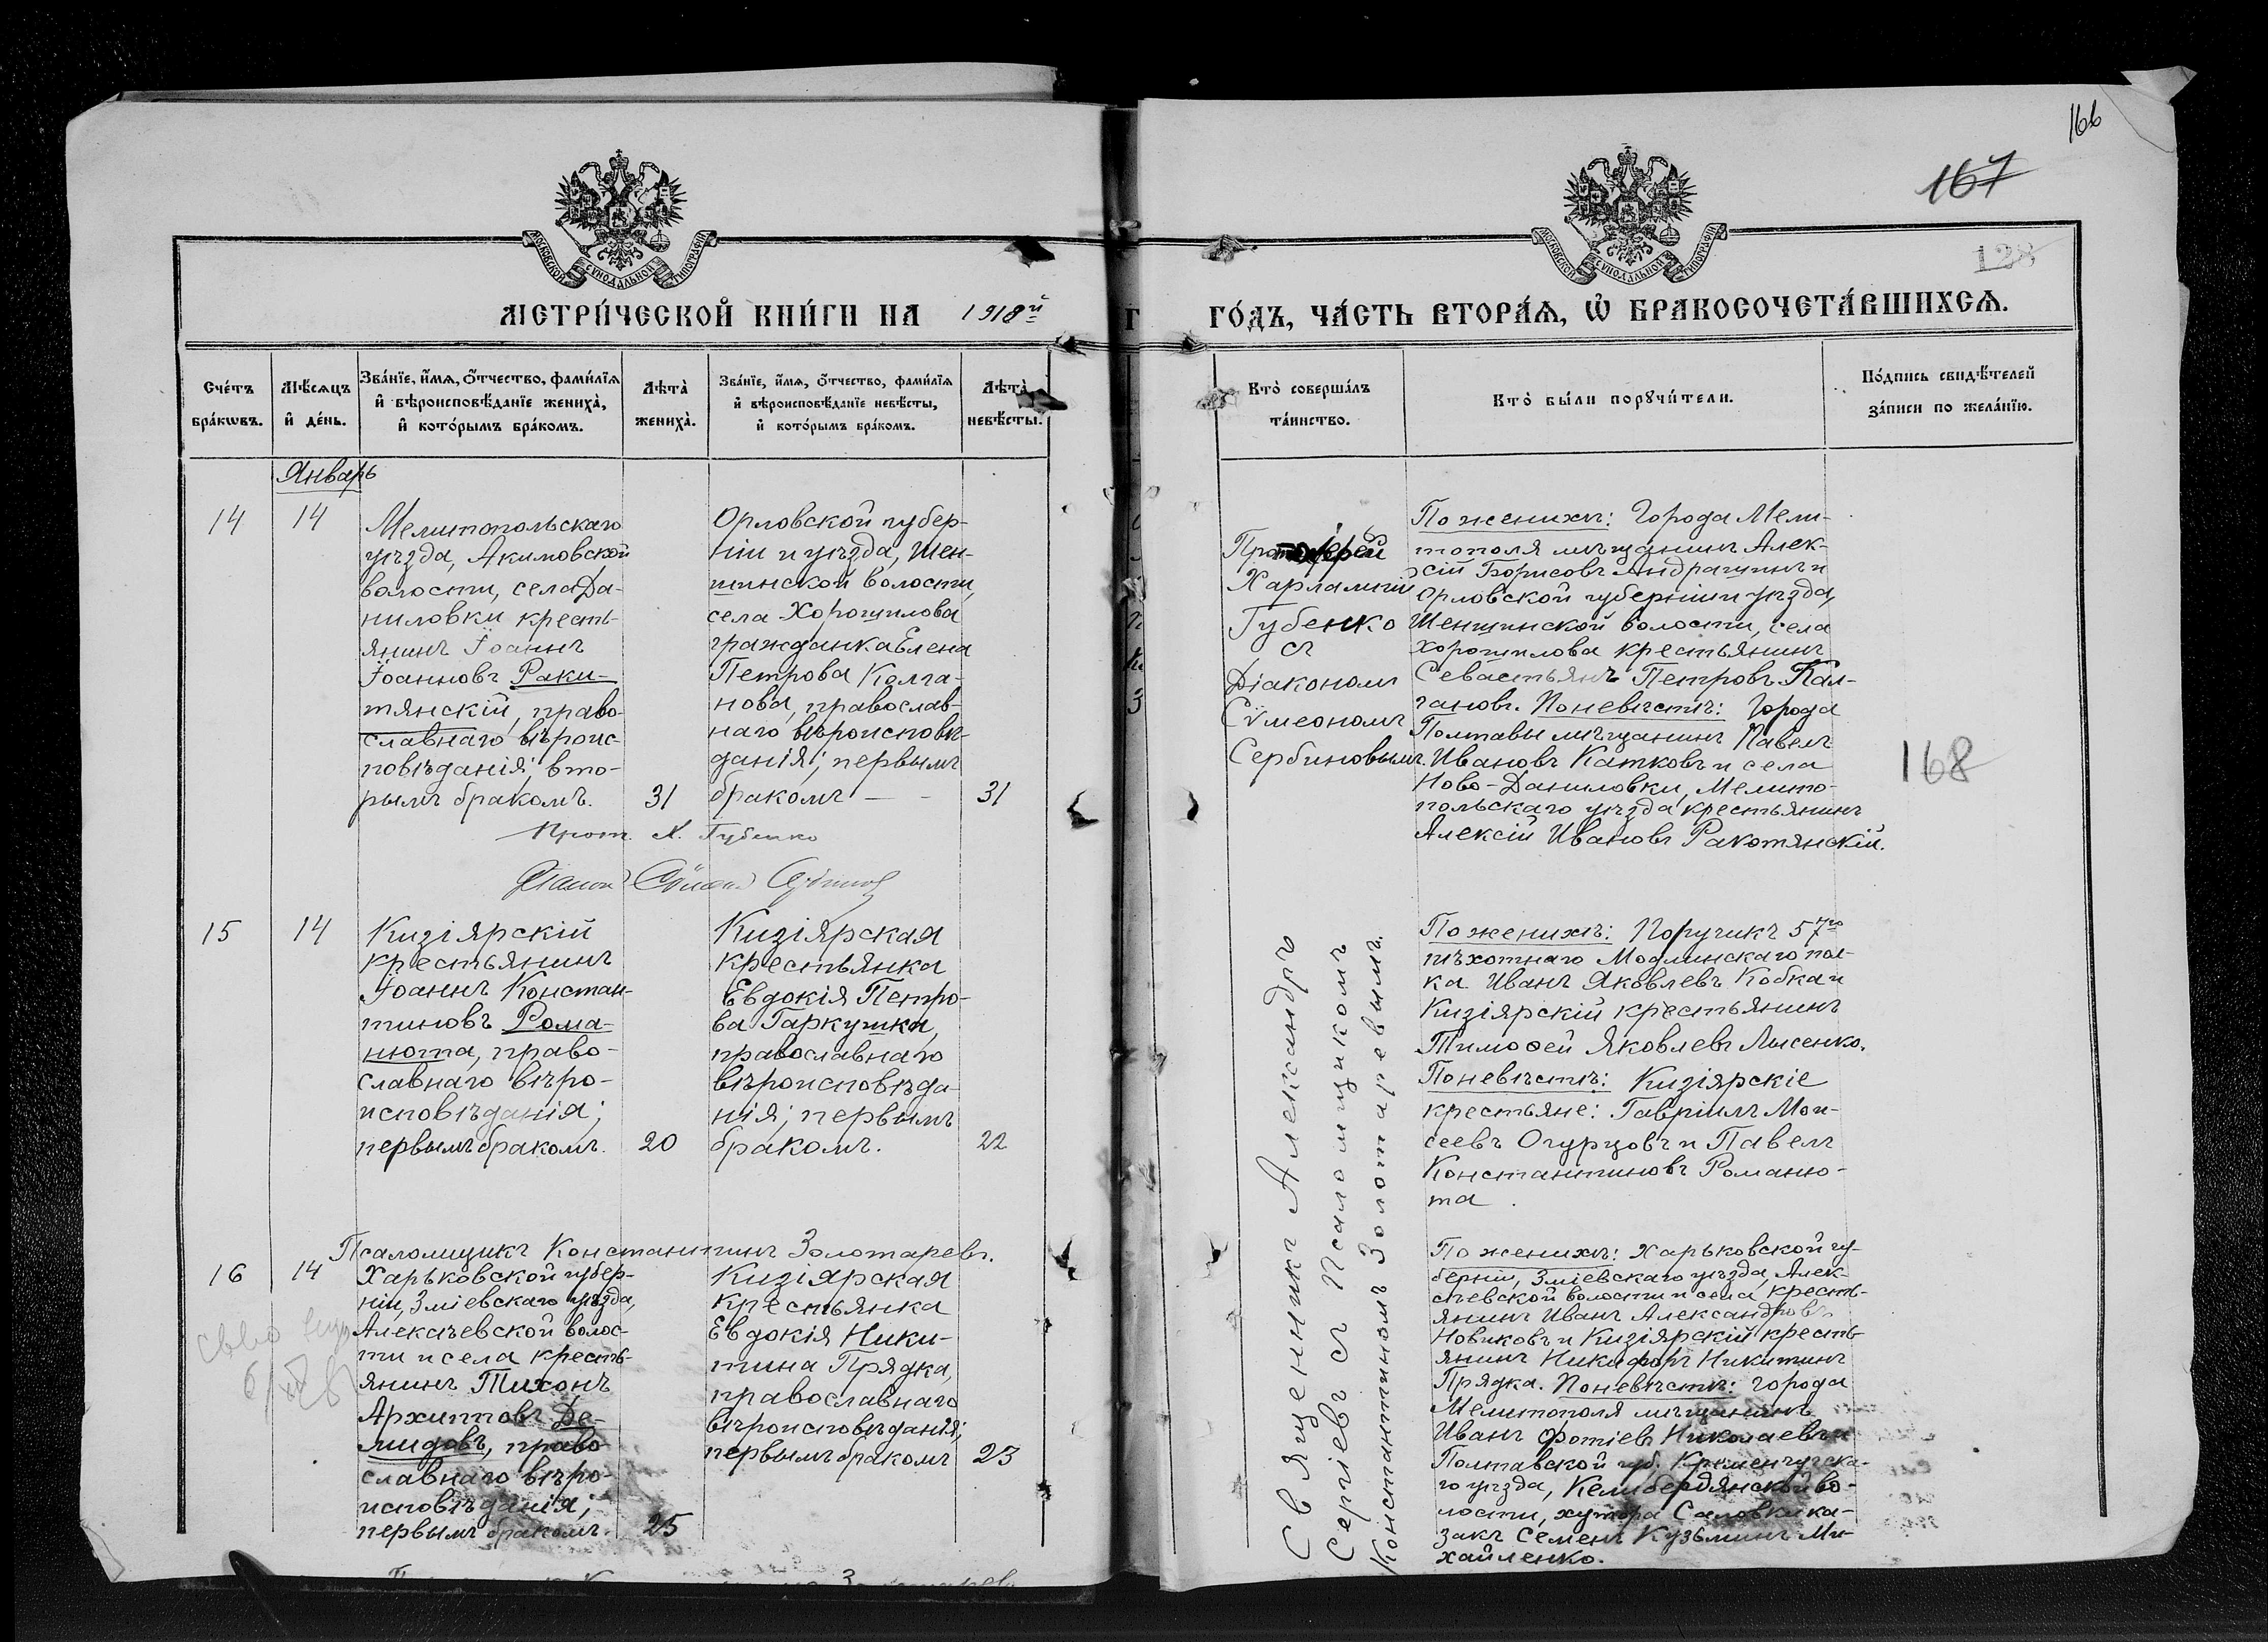 166
167
128
МОСКОВСКОЙ СѴНОДАЛЬНОЙ ТИПОГРАФІИ
МОСКОВСКОЙ СѴНОДАЛЬНОЙ ТИПОГРАФІИ
МЕТРИ́ЧЕСКОЙ КНИ́ГИ НА 1918й
ГО́ДЪ, ЧА́СТЬ ВТОРА́Ѧ, Ѽ БРАКОСОЧЕТА́ВШИХСѦ.
Сче́тъ
бра́кѡвъ.
Мѣ́сѧцъ
и҆ де́нь.
Зва́нїе, и҆́мѧ, о҆́тчество, фами́лїѧ
и҆ вѣроисповѣ́данїе жениха̀,
и҆ кото́рымъ бра́комъ.
Лѣта̀
жениха̀.
Зва́нїе, и҆́мѧ, о҆́тчество, фами́лїѧ
и҆ вѣроисповѣ́данїе невѣ́сты,
и҆ кото́рымъ бра́комъ.
Лѣта̀
невѣ́сты.
Кто̀ соверша́лъ
та́инство.
Кто̀ бы́ли порꙋчи́тели.
По́дпись свидѣ́телей
за́писи по жела́нїю.
Январь
14
14
Мелитопольскаго
уѣзда, Акимовской
волости, села Да-
ниловки кресть-
янинъ Іоаннъ
Іоанновъ Раки-
тянскій, право-
славнаго вѣроис-
повѣданія; вто-
рымъ бракомъ.
31
Орловской губер-
ніи и уѣзда, Шен-
шинской волости,
села Хорошилова
гражданка Елена
Петрова Колга-
нова, православ-
наго вѣроисповѣ-
данія; первымъ
бракомъ — -
31
Протоіерей
Харлампій
Губенко
съ
Діакономъ
Сѵмеономъ
Сербиновымъ.
По женихѣ: Города Мели-
тополя мѣщанинъ Алек-
сій Борисовъ Андрагинъ и
Орловской губерніи и уѣзда,
Шеншинской волости, села
Хорошилова крестьянинъ
Севастьянъ Петровъ Кол-
гановъ. По невѣстѣ: Города
Полтавы мѣщанинъ Павелъ
Ивановъ Катковъ и села
Ново-Даниловки, Мелито-
польскаго уѣзда крестьянинъ
Алексій Ивановъ Ракотянскій.
168
Прот. Х. Губенко
Діакон Сѵмеон Сербинов
15
14
Кизіярскій
крестьянинъ
Іоаннъ Констан-
тиновъ Рома-
нюта, право-
славнаго вѣро-
исповѣданія;
первымъ бракомъ.
20
Кизіярская
крестьянка
Евдокія Петро-
ва Гаркушка,
православнаго
вѣроисповѣда-
нія; первымъ
бракомъ.
22
Священникъ Александръ
Сергіевъ съ Псаломщикомъ
Константиномъ Золотаревымъ.
По женихѣ: Поручикъ 57го
пѣхотнаго Модлинскаго пол-
ка Иванъ Яковлевъ Кобка и
Кизіярскій крестьянинъ
Тимоѳей Яковлевъ Лысенко.
По невѣстѣ: Кизіярскіе
крестьяне: Гавріилъ Мои-
сеевъ Огурцовъ и Павелъ
Константиновъ Романю-
та.
Псаломщикъ Константинъ Золотаревъ.
16
14
Харьковской губер-
ніи, Зміевскаго уѣзда,
Алексѣевской волос-
ти и села кресть-
янинъ Тихонъ
Архиповъ Де-
мидовъ, право-
славнаго вѣро-
исповѣданія;
первымъ бракомъ.
25
Кизіярская
крестьянка
Евдокія Ники-
тина Прядка,
православнаго
вѣроисповѣданія;
первымъ бракомъ
23
По женихѣ: Харьковской гу-
берніи, Зміевскаго уѣзда, Алек-
сѣевской волости и села кресть-
янинъ Иванъ Александровъ
Новиковъ и Кизіярскій кресть-
янинъ Никифоръ Никитинъ
Прядка. По невѣстѣ: города
Мелитополя мѣщанинъ
Иванъ Фотіевъ Николаевъ и
Полтавской губ. Кременчугска-
го уѣзда, Келибердянской во-
лости, хутора Саловки ка-
закъ Семенъ Кузьминъ Ми-
хайленко.